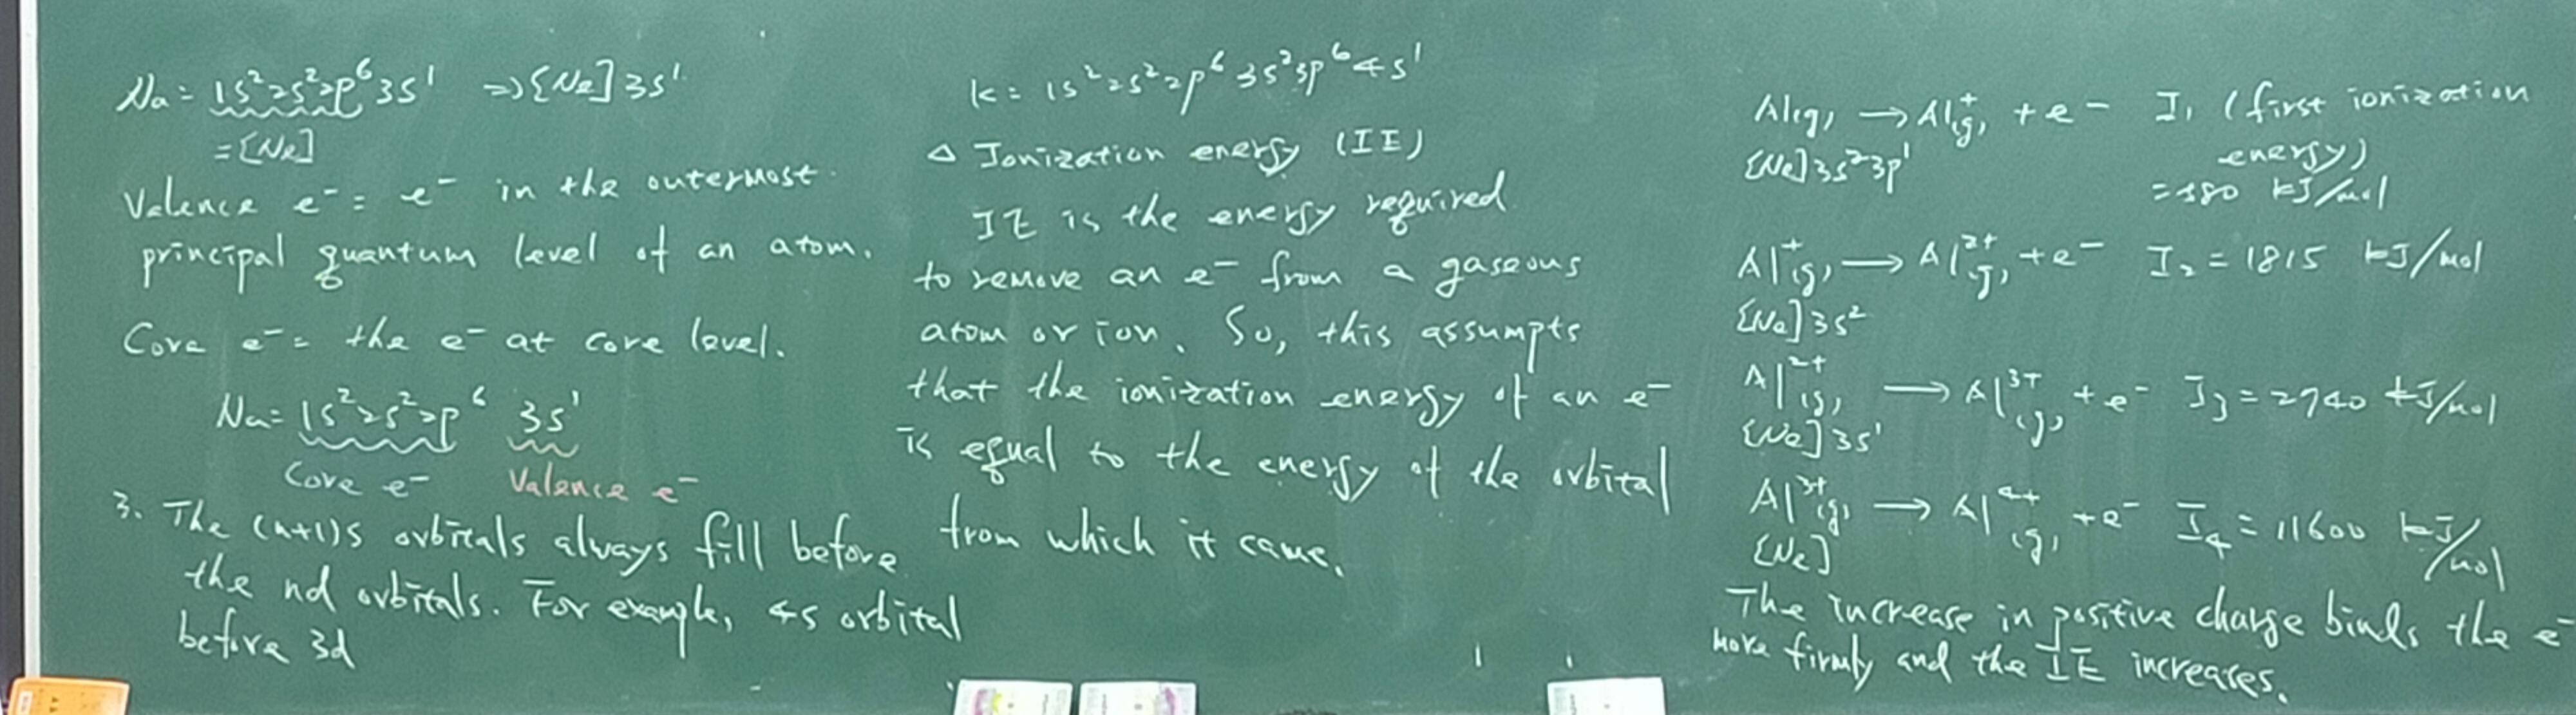 Na = 1s²2s²2p⁶3s¹ ⇒ [Ne]3s¹
= [Ne]
Valence e⁻ = e⁻ in the outermost
principal quantum level of an atom.
Core e⁻ = the e⁻ at core level.
Na = 1s²2s²2p⁶ 3s¹
Core e⁻ Valence e⁻
3. The (n+1)s orbitals always fill before
the nd orbitals. For example, 4s orbital
before 3d
K = 1s²2s²2p⁶3s²3p⁶4s¹
△ Ionization energy (IE)
IE is the energy required
to remove an e⁻ from a gaseous
atom or ion. So, this assumpts
that the ionization energy of an e⁻
is equal to the energy of the orbital
from which it came.
Al(g) → Al⁺(g) + e⁻ I₁ (first ionization
[Ne]3s²3p¹ energy)
= 580 kJ/mol
Al⁺(g) → Al²⁺(g) + e⁻ I₂ = 1815 kJ/mol
[Ne]3s²
Al²⁺(g) → Al³⁺(g) + e⁻ I₃ = 2740 kJ/mol
[Ne]3s¹
Al³⁺(g) → Al⁴⁺(g) + e⁻ I₄ = 11600 kJ/mol
[Ne]
The increase in positive charge binds the e⁻
more firmly and the IE increases.